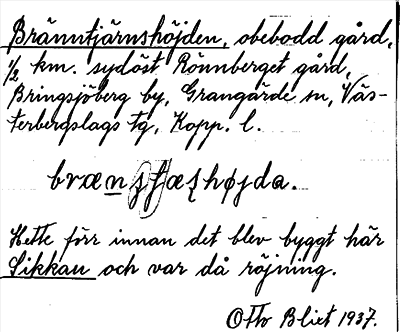 Bränntjärnshöjden, obebodd gård,
1/2 km. sydöst Rönnberget gård,
Bringsjöberg by, Grangärde sn, Väs-
terbergslags tg, Kopp. l.
Hette förr innan det blev byggt här
Sikkan och var då röjning.
Otto Blixt 1937.